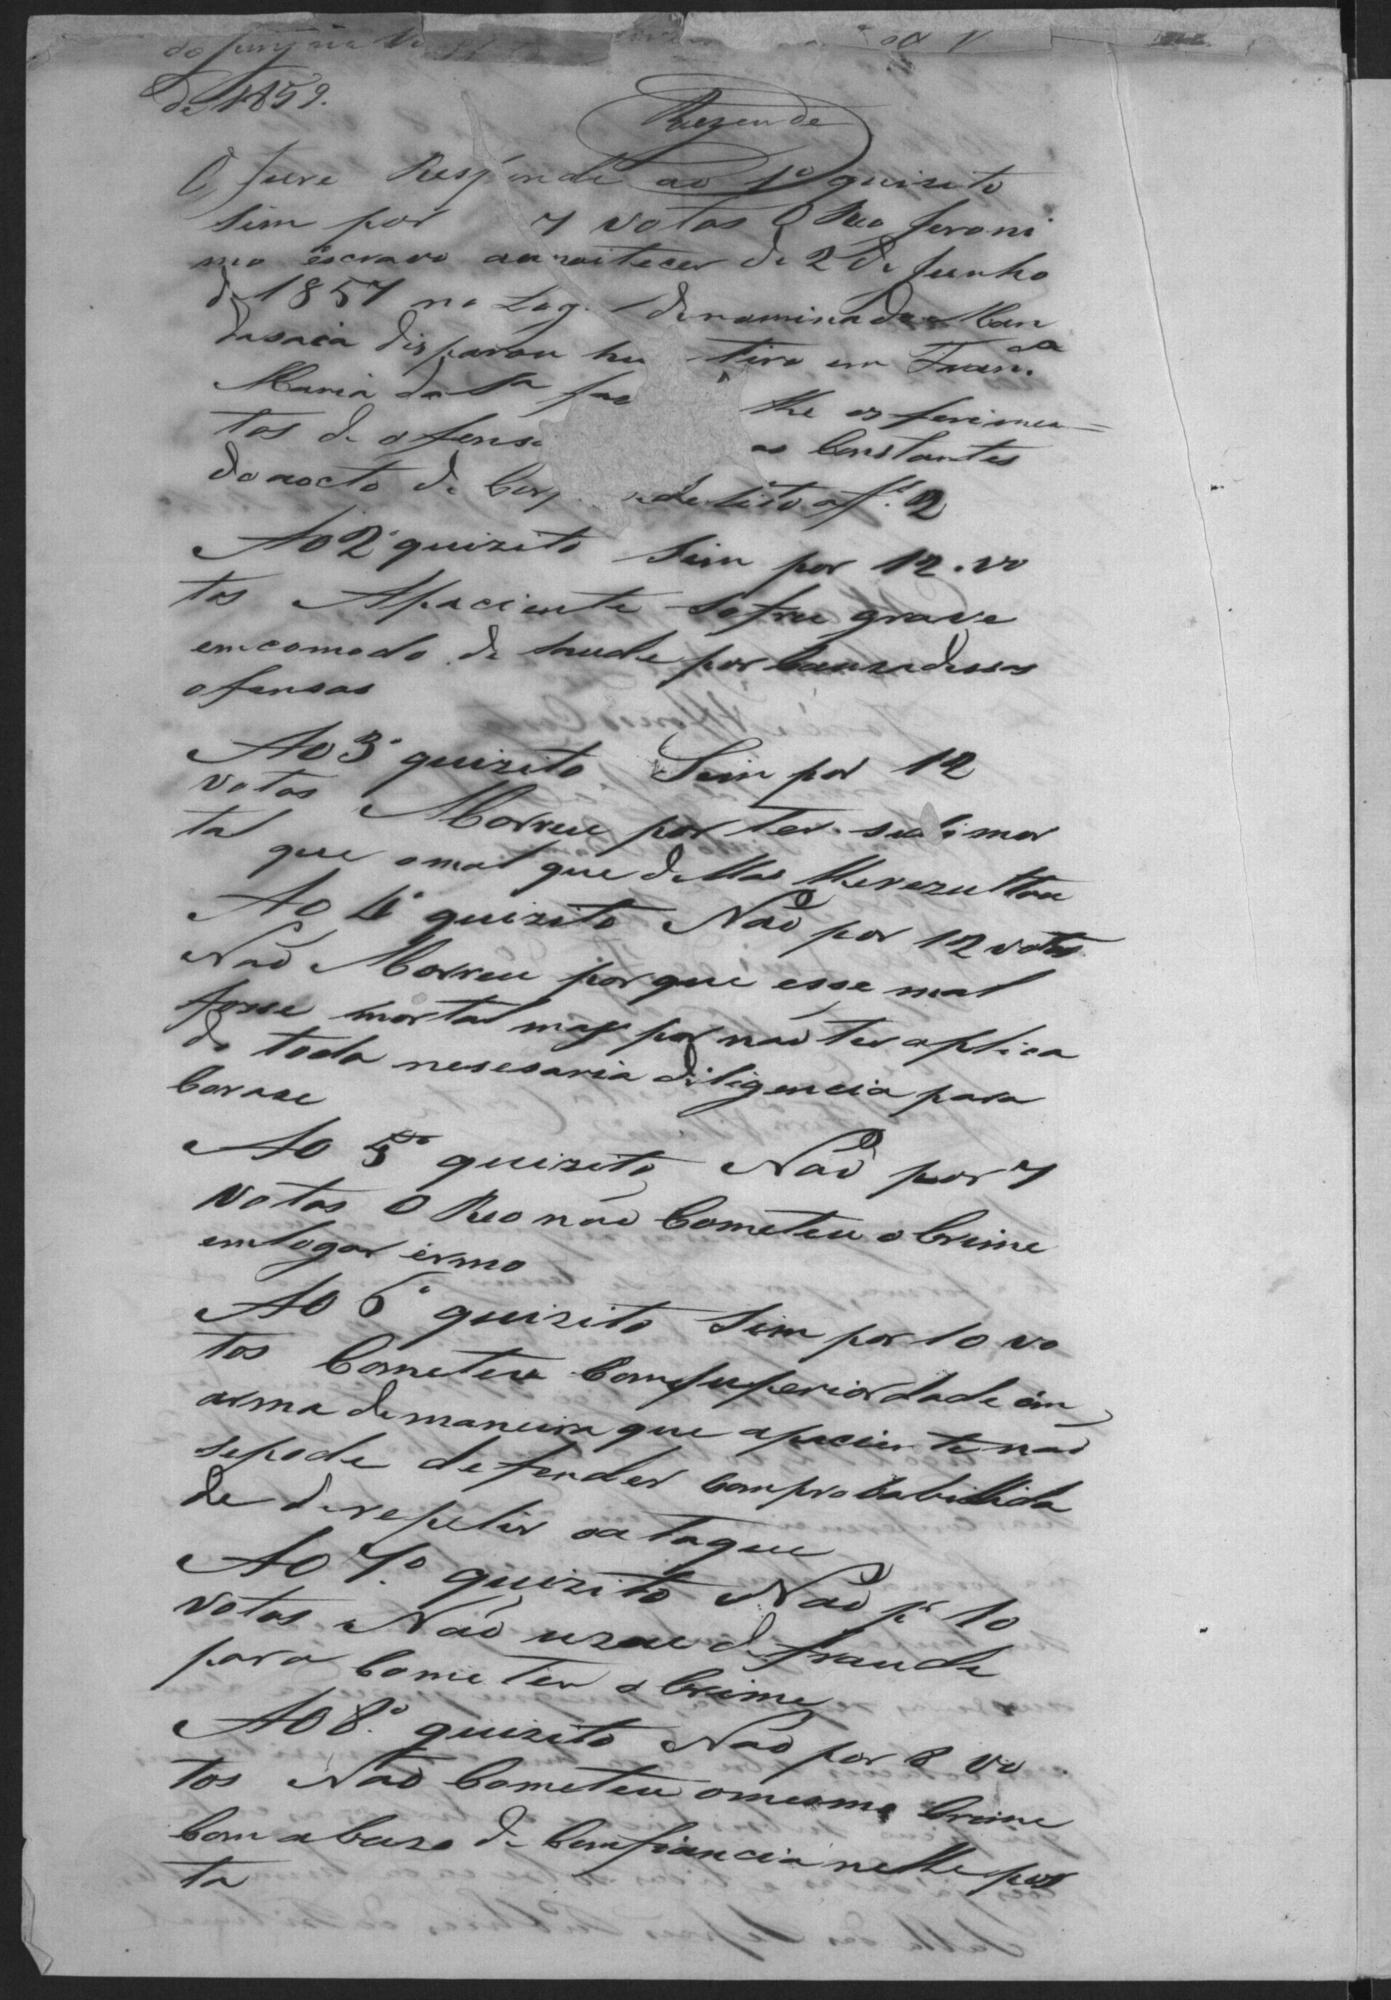 de 1859.
Rezende
O Jure Responde ao 1º quizito
Sim por 7 votos O Reo Jeroni
mo escravo aunoitecer de 2 de Junho
de 1857 no Lug. denominado Man
dasaia disparou hu tiro em Fran.ca
Maria da
lhe os ferimen=
tos de ofensa as Constantes
do aocto de Corp delito a f. 2
Ao 2º quizito Sim por 12. vo
tos A paciente sofreu grave
emcomodo de saude por Cauza dessas
ofensas
Ao 3º quizito Sim por 12
votos Morreu por ter sido mor
tal que o mal que dellas lhe rezultou
Ao 4º quizito Não por 12 votos
Não Morreu porque esse mal
fosse mortal mas por não ter aplica
do toda nesesaria diligencia para
Corase
Ao 5º quizito Não por 7
Votos O Reo não Cometeu o Crime
em logar ermo
Ao 6º quizito Sim por 10 vo
tos Cometeu Com superioridade em
arma de maneira que a paciente não
se pode defender com probabillida
de de repelir o ataque
Ao 7.º quizito Não pr 10
votos Não uzou de fraude
para Cometer o Crime
Ao 8.º quizito Não por 8 vo
tos Não Cometeu o mesmo Crime
Com abuzo de Comfiancia nelle pos
ta